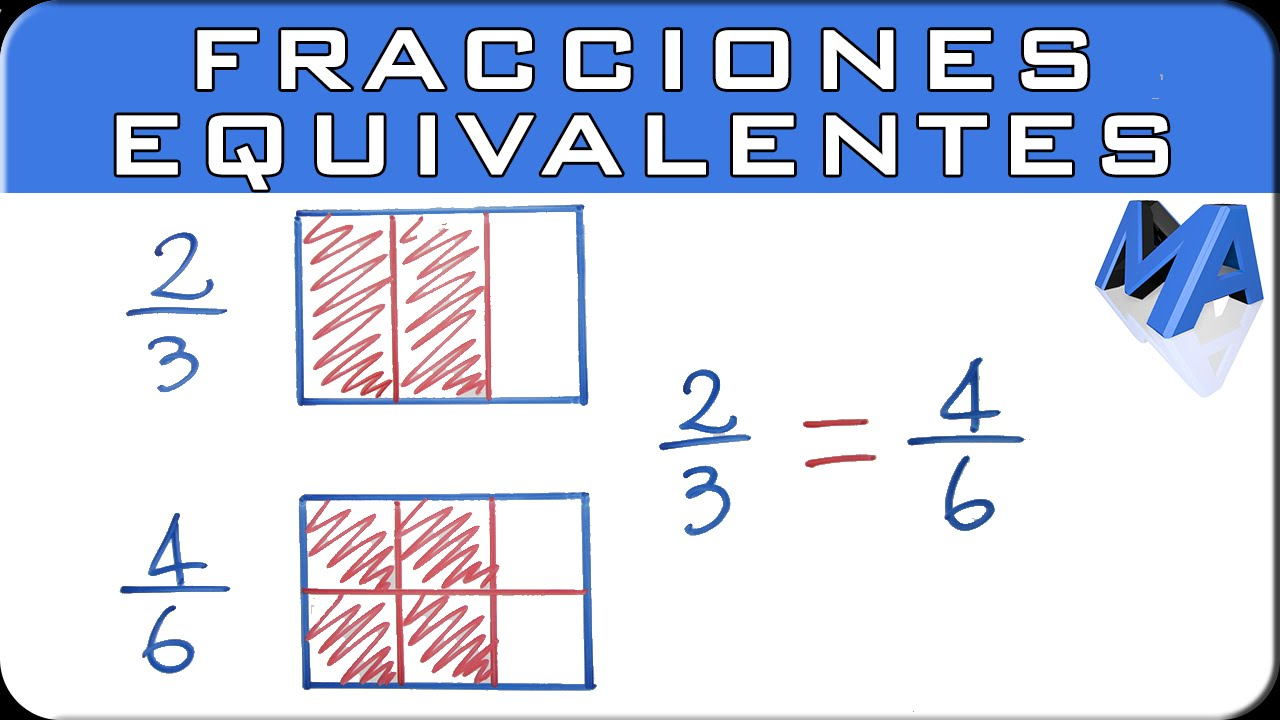 FRACCIONES
EQUIVALENTES
MA
2/3
2/3 = 4/6
4/6